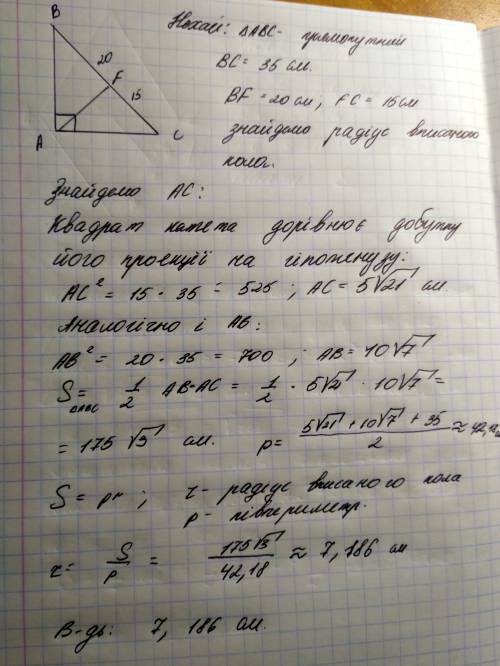 B
Нехай: ΔABC - прямокутний
20
F
BC = 35 см.
15
BF = 20 см; FC = 15 см
A
C
знайдемо радіус вписаного
кола.
Знайдемо AC:
Квадрат катета дорівнює добутку
його проекції на гіпотенузу:
AC² = 15 · 35 = 525 ; AC = 5√21 см.
Аналогічно і AB:
AB² = 20 · 35 = 700 ; AB = 10√7
S = 1/2 AB·AC = 1/2 · 5√21 · 10√7 =
= 175√3 см. p = (5√21 + 10√7 + 35)/2 ≈ 42,18
S = pr ; r - радіус вписаного кола
p - півпериметр.
r = S/p = 175√3/42,18 ≈ 7,186 см
В-дь: 7,186 см.